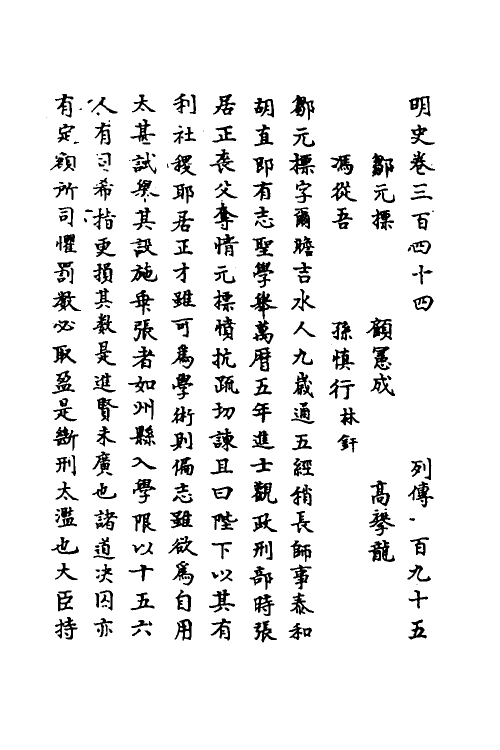 明史卷三百四十四　列傳一百九十五
鄒元標　顧憲成　高攀龍
馮從吾　孫慎行 林釬
鄒元標字爾瞻吉水人九歲通五經稍長師事泰和
胡直即有志聖學舉萬曆五年進士觀政刑部時張
居正喪父奪情元標憤抗疏切諫且曰陛下以其有
利社稷耶居正才雖可為學術則偏志雖欲為自用
太甚試舉其設施乖張者如州縣入學限以十五六
人有司希指更損其數是進賢未廣也諸道决囚亦
有定額所司懼罰數必取盈是斷刑太濫也大臣持